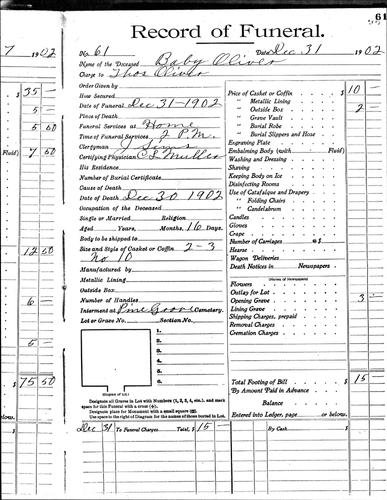 61
7 1902
$ 35 -
5 -
5 50
Fluid) 7 50
12 50
6 -
5 -
$ 75 50
below.
Record of Funeral.
No. 61 Date Dec 31 1902
Name of the Deceased Baby Oliver
Charge to Thos Oliver
Order Given by
How Secured
Date of Funeral Dec 31-1902
Place of Death
Funeral Services at Home
Time of Funeral Services 2 P.M.
Clergyman J Sims
Certifying Physician
His Residence
Number of Burial Certificate
Cause of Death
Date of Death Dec 30 1902
Occupation of the Deceased
Single or Married Religion
Aged Years, Months, 16 Days.
Body to be shipped to
Size and Style of Casket or Coffin 2-3
No 10
Manufactured by
Metallic Lining
Outside Box
Number of Handles
Interment at Pine Grove Cemetery.
Lot or Grave No. Section No.
1.
2.
3.
4.
5.
6.
(Diagram of Lot.)
Designate all Graves in Lot with Numbers (1, 2, 3, 4, etc.), and mark
space for this Funeral with a cross (+).
Designate place for Monument with a small square (□).
Use space to the right of Diagram for the names of those buried in Lot.
Price of Casket or Coffin $ 10 -
" Metallic Lining
" Outside Box 2 -
" Grave Vault
" Burial Robe
" Burial Slippers and Hose
Engraving Plate
Embalming Body (with Fluid)
Washing and Dressing
Shaving
Keeping Body on Ice
Disinfecting Rooms
Use of Catafalque and Drapery
" Folding Chairs
" Candelabrum
Candles
Gloves
Crape
Number of Carriages @ $
Hearse
Wagon Deliveries
Death Notices in Newspapers
(Names of Newspapers)
Flowers
Outlay for Lot
Opening Grave 3 -
Lining Grave
Shipping Charges, prepaid
Removal Charges
Cremation Charges
Total Footing of Bill $ 15 -
By Amount Paid in Advance
Balance
Entered into Ledger, page or below.
Dec 31 To Funeral Charges Total, $ 15 - By Cash $